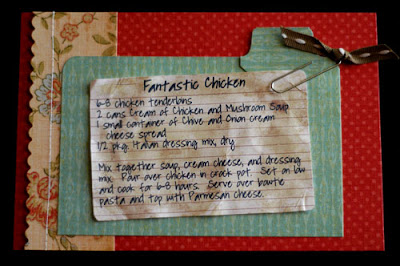 Fantastic Chicken
6-8 chicken tenderloins
2 cans Cream of Chicken and Mushroom Soup
1 small container of Chive and Onion cream
cheese spread
1/2 pkg. Italian dressing mix, dry
Mix together soup, cream cheese, and dressing
mix. Pour over chicken in crock pot. Set on low
and cook for 6-8 hours. Serve over bowtie
pasta and top with Parmesan cheese.